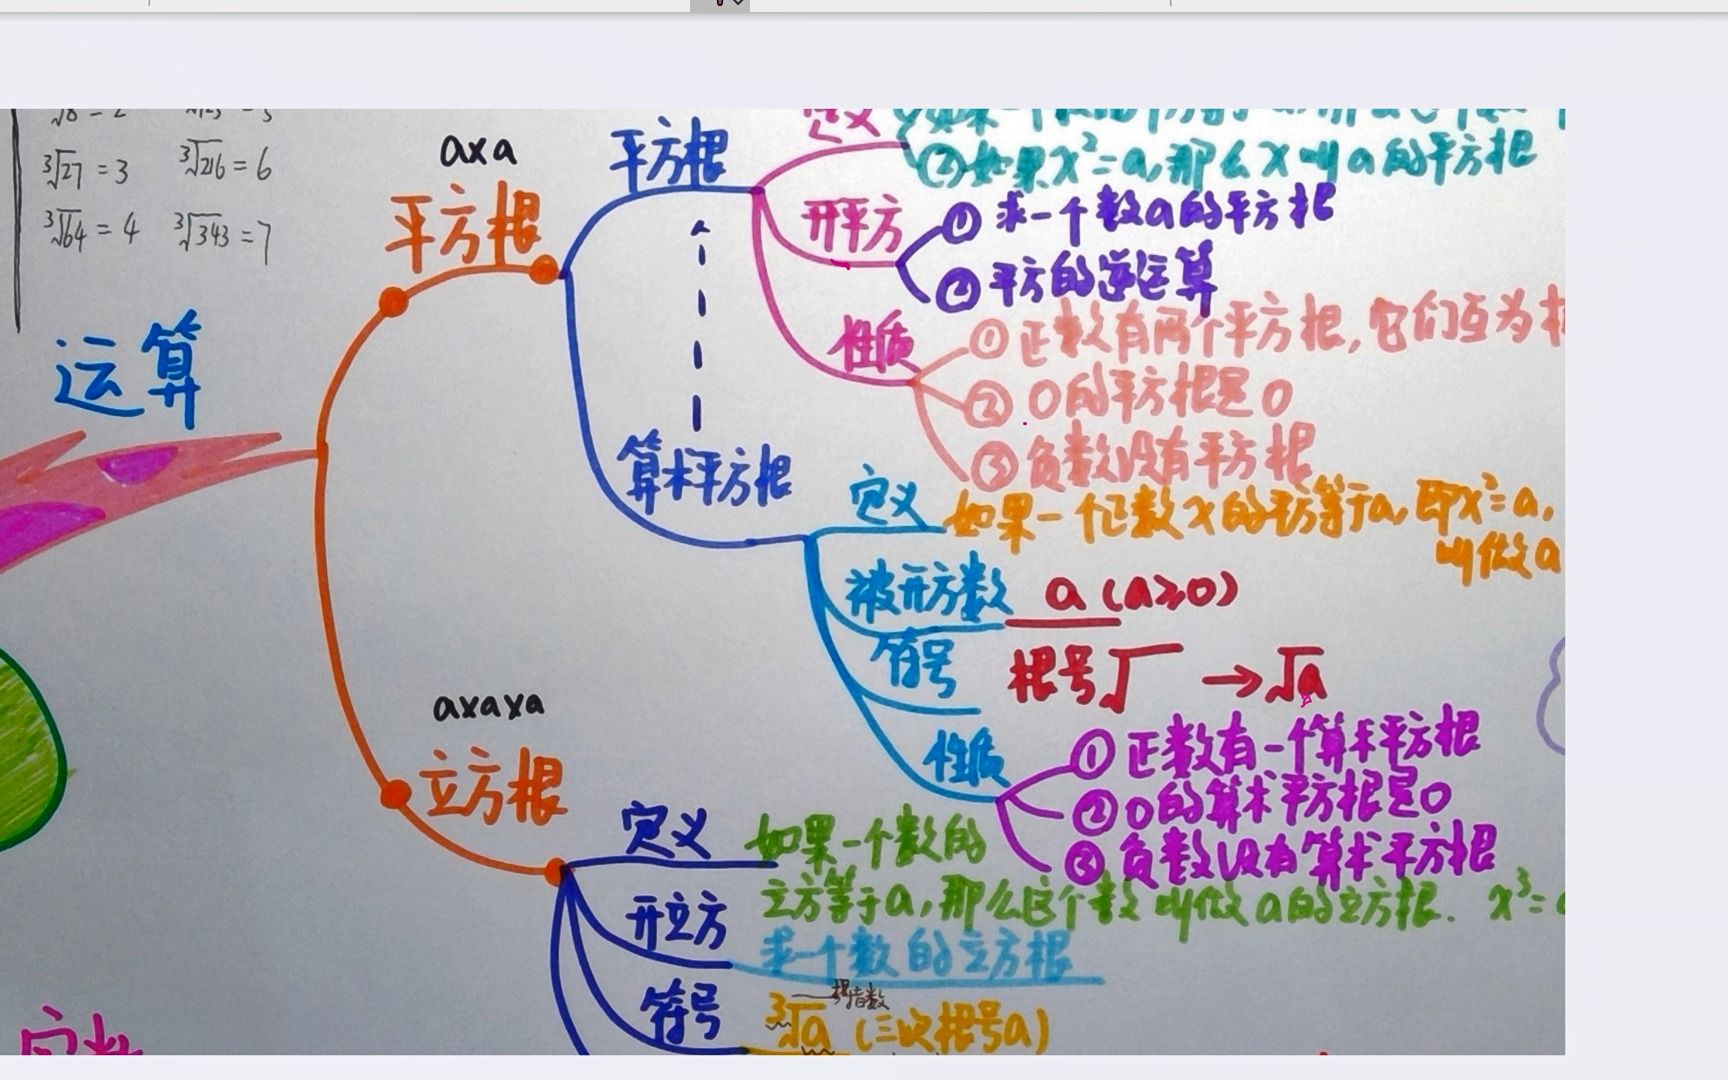 ³√27 = 3
³√216 = 6
³√64 = 4
³√343 = 7
运算
axa
平方根
平方根
定义
②如果x²=a,那么x叫a的平方根
开平方
①求一个数a的平方根
②平方的逆运算
性质
①正数有两个平方根,它们互为
②0的平方根是0
③负数没有平方根
算术平方根
定义
如果一个正数x的平方等于a,即x²=a,
叫做a
被开方数
a (a≥0)
符号
根号√ →√a
性质
①正数有一个算术平方根
②0的算术平方根是0
③负数没有算术平方根
axaxa
立方根
定义
如果一个数的
立方等于a,那么这个数叫做a的立方根. x³=
开立方
求一个数的立方根
符号
根指数
³√a (三次根号a)